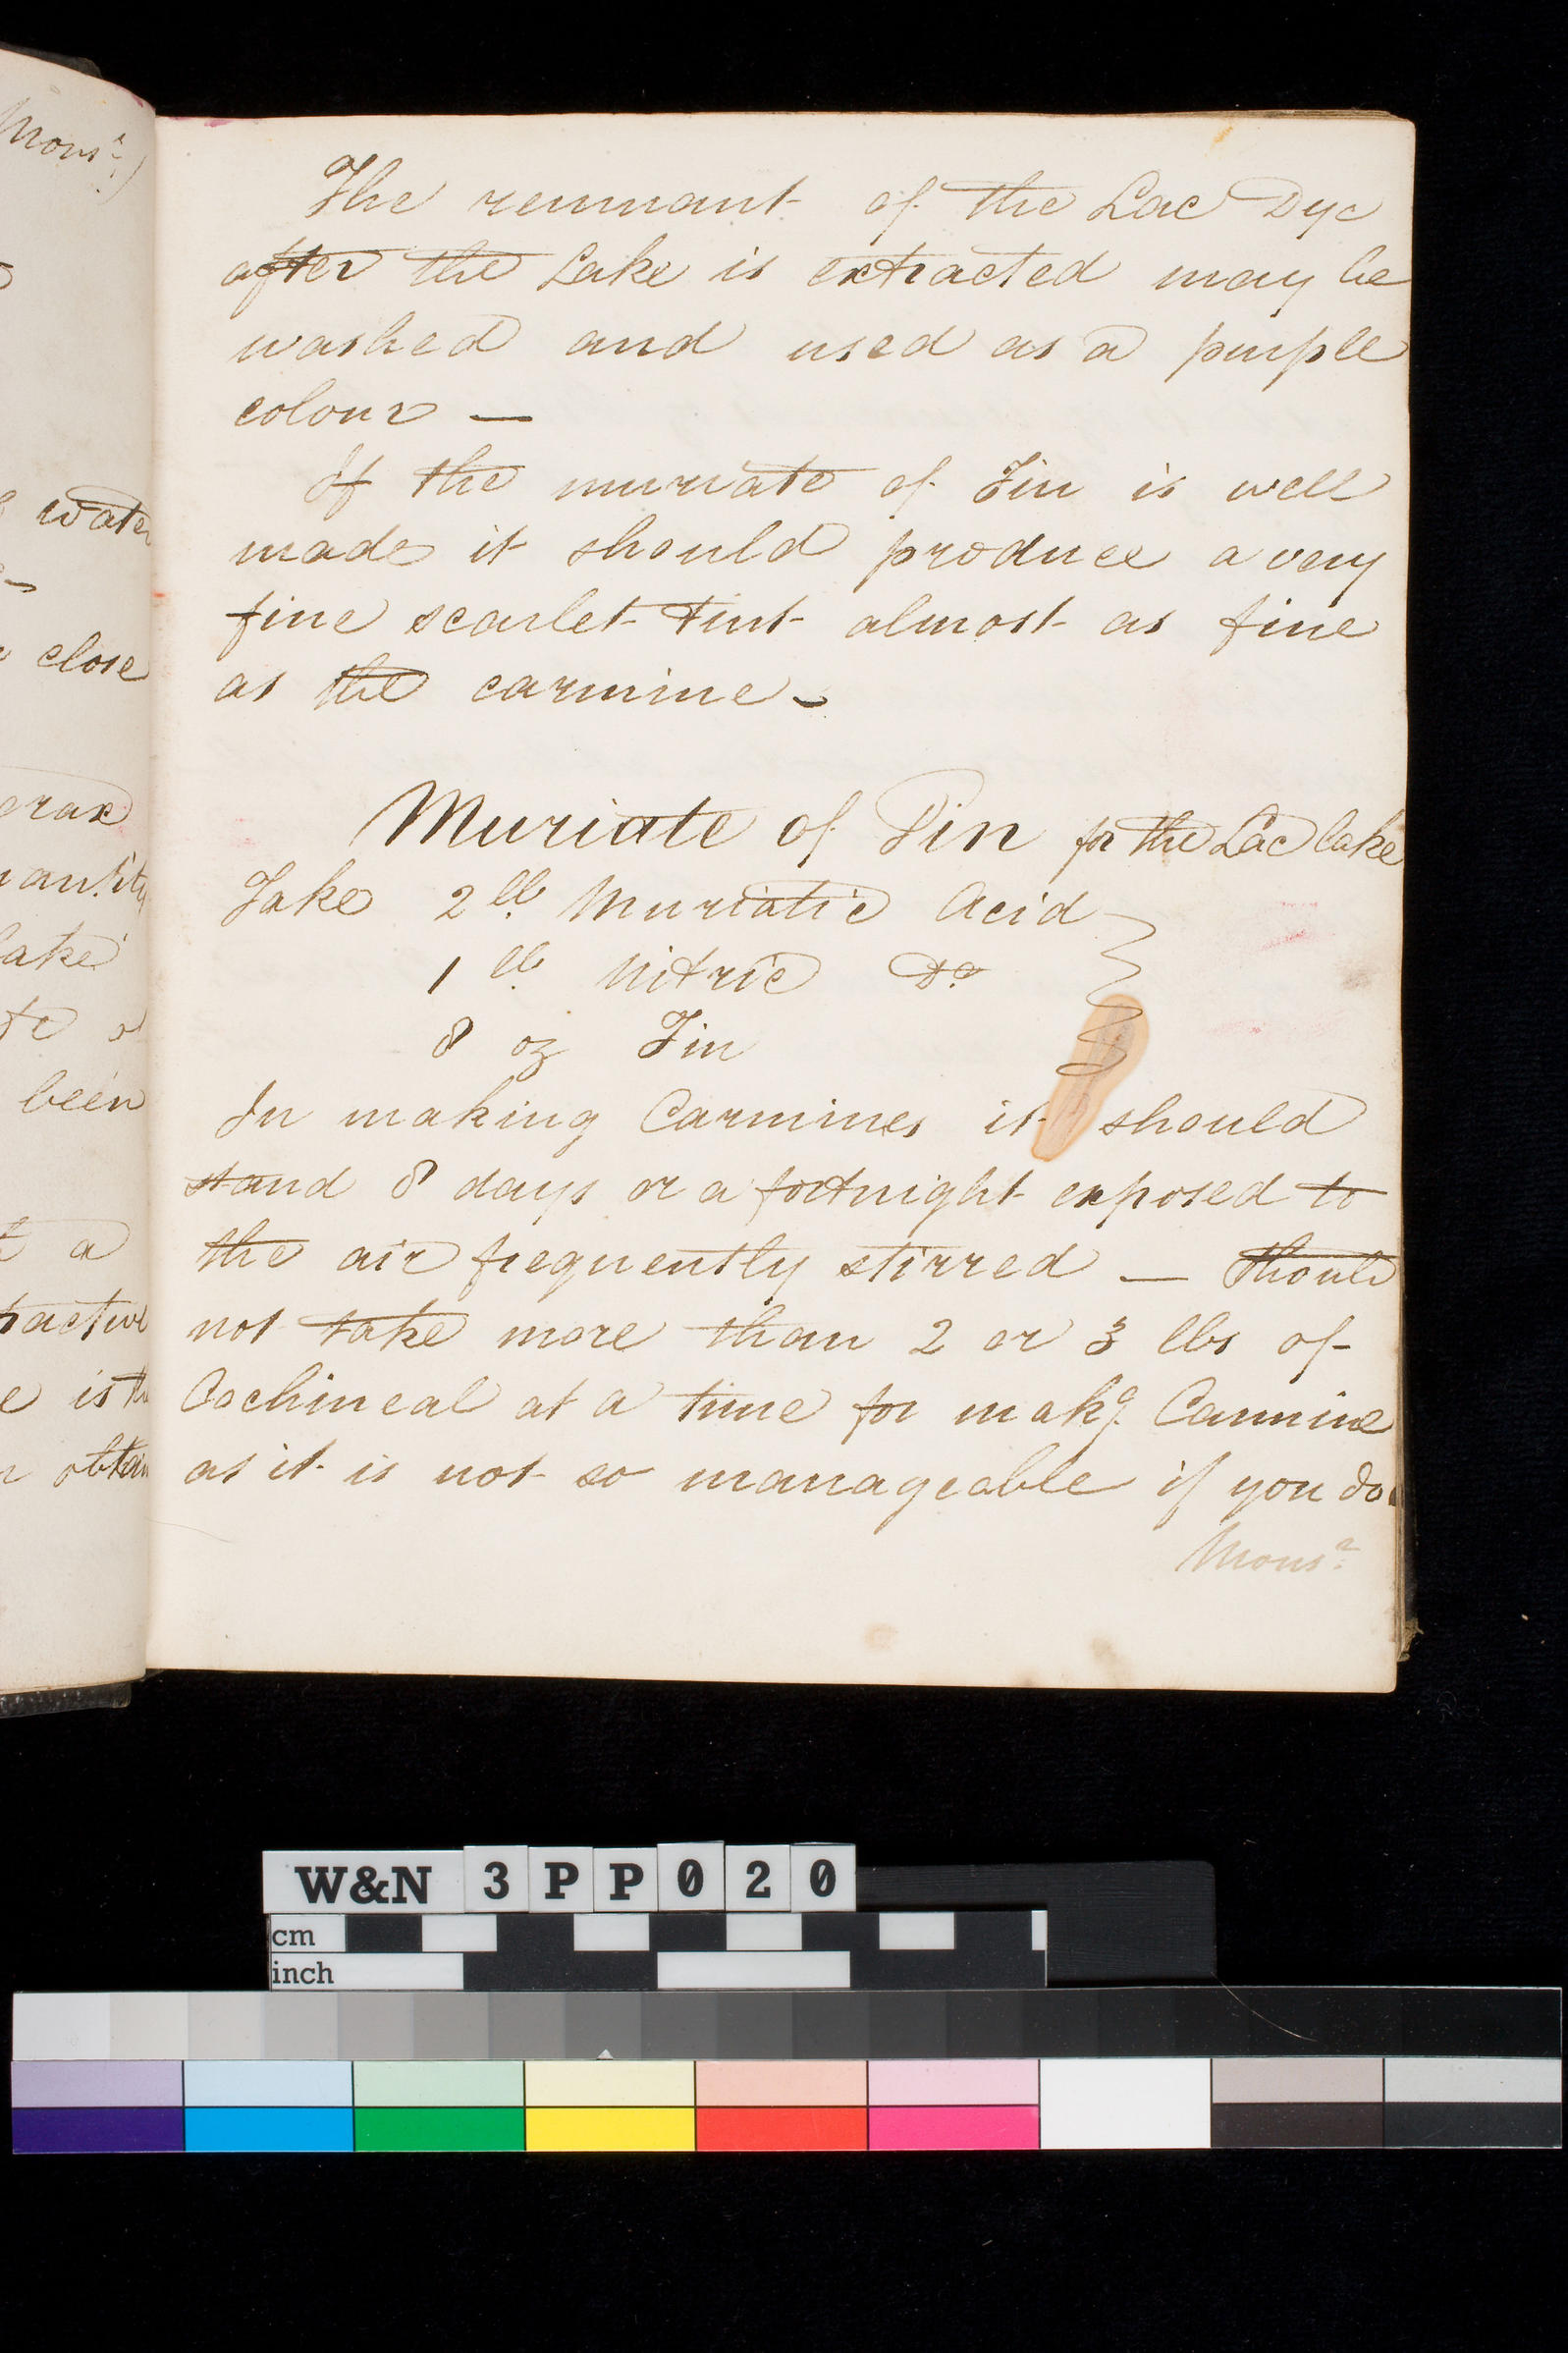 Mons.r)
water
close
erax
uantity
lake
te o
been
a
tractive
e is the
obtain
The remnant of the Lac Dye
after the Lake is extracted may be
washed and used as a purple
colour —
If the muriate of Tin is well
made it should produce a very
fine scarlet tint almost as fine
as the carmine -
Muriate of Tin for the Lac lake
Take 2 lb Muriatic Acid
1 lb Nitric Do
8 oz Tin
In making Carmines it should
stand 8 days or a fortnight exposed to
the air frequently stirred — Should
not take more than 2 or 3 lbs of
Cochineal at a time for makg. Carmine
as it is not so manageable if you do.
Mons.r
W&N 3PP020
cm
inch